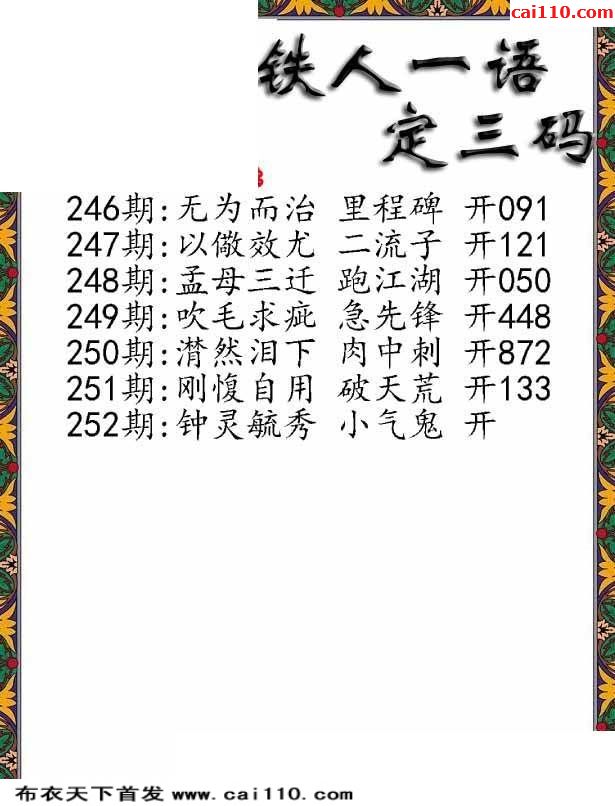 cai110.com
铁人一语
定三码
246期:无为而治 里程碑 开091
247期:以儆效尤 二流子 开121
248期:孟母三迁 跑江湖 开050
249期:吹毛求疵 急先锋 开448
250期:潸然泪下 肉中刺 开872
251期:刚愎自用 破天荒 开133
252期:钟灵毓秀 小气鬼 开
布衣天下首发 www.cai110.com